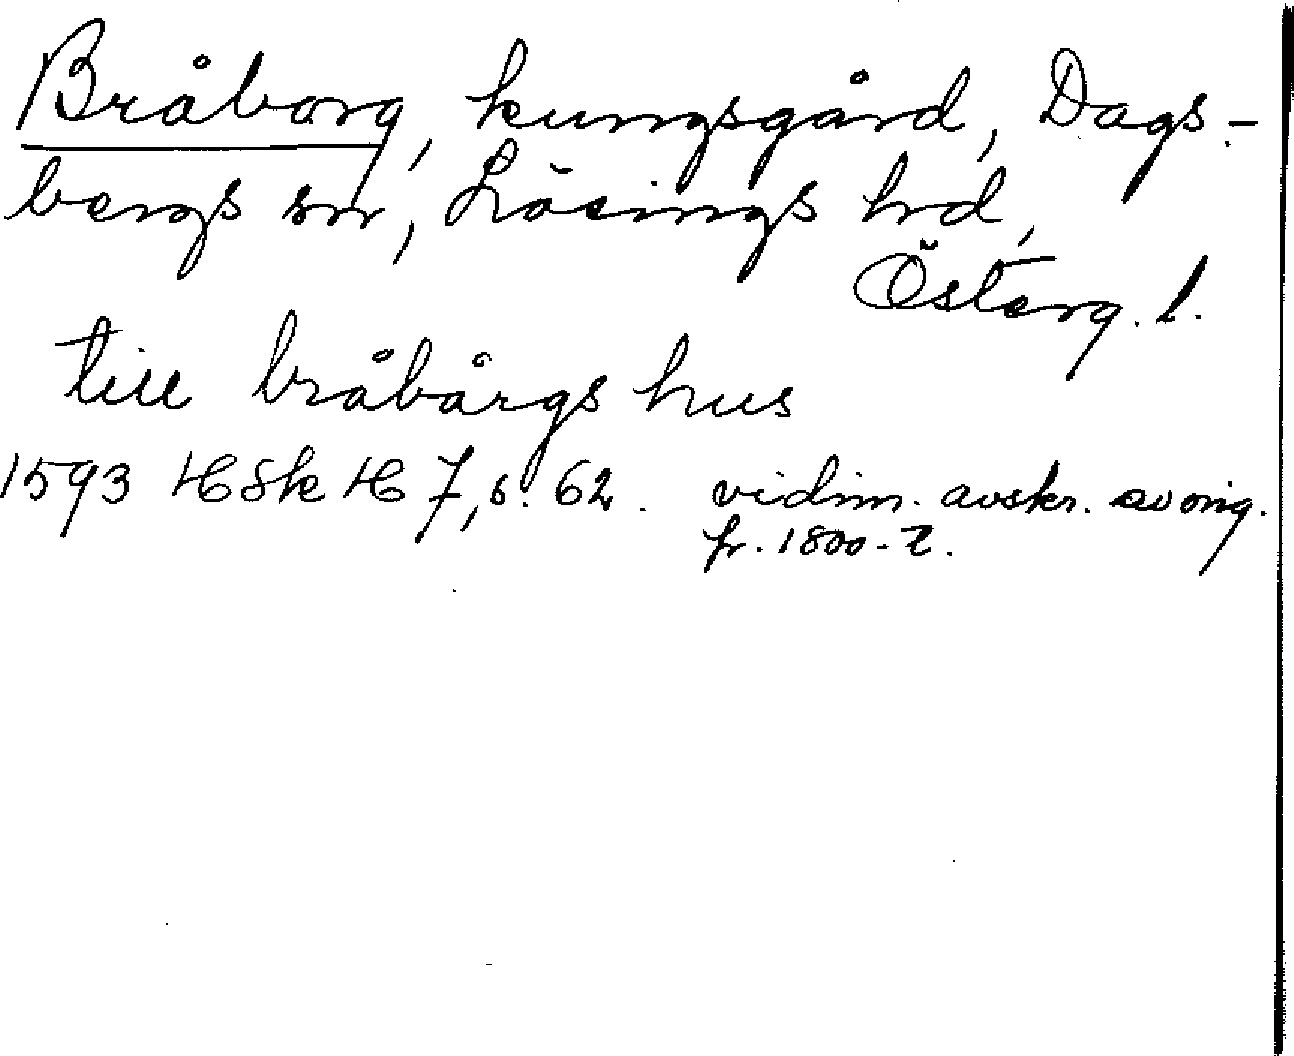 Bråborg, kungsgård, Dags-
bergs sn, Lösings hd,
Österg. l.
till bråbårgs hus
1593 HSk H 7, s. 62. vidim. avskr. av orig.
fr. 1800-t.